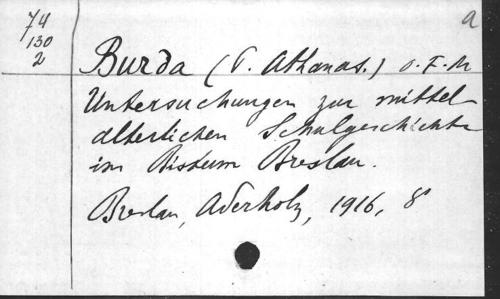 74
130
2
a
Burda (P. Athanas.) O.F.M
Untersuchungen zur mittel-
alterlichen Schulgeschichte
im Bistum Breslau.
Breslau, Aderholz, 1916, 8°